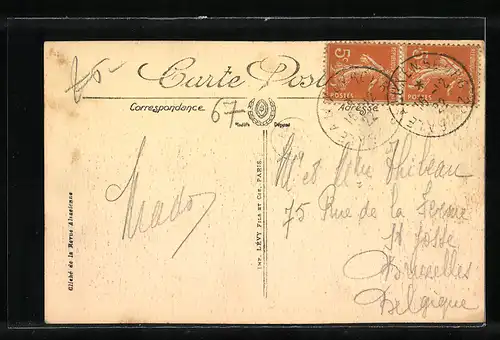 Carte Post
Correspondance
Adresse
67
Modèle Déposé
5c
POSTES
POSTES
Mr et Mme Thibeau
75 Rue de la Ferme
St Josse
Bruxelles
Belgique
Mado
Cliché de la Revue Alsacienne
IMP. LÉVY FILS ET CIE, PARIS.